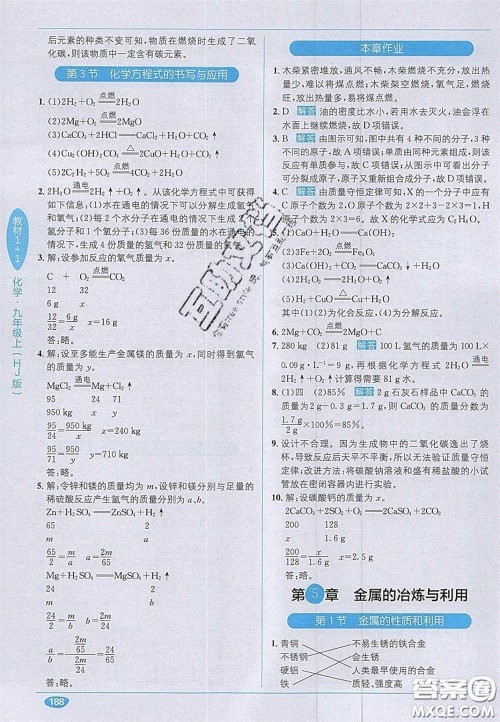 后元素的种类不变可知，物质在燃烧时生成了二氧
化碳，则该物质中一定含有碳元素。
第3节 化学方程式的书写与应用
1. (1)2H₂+O₂ 点燃 2H₂O
(2)2Mg+O₂ 点燃 2MgO
(3)CaCO₃+2HCl——CaCl₂+H₂O+CO₂↑
(4)Cu₂(OH)₂CO₃ △ 2CuO+H₂O+CO₂↑
(5)4P+5O₂ 点燃 2P₂O₅
2. 2H₂O 通电 2H₂↑+O₂↑ 从该化学方程式中可获得
如下信息：(1)水在通电的情况下可以分解生成氢气
和氧气；(2)每2个水分子在通电的情况下生成2个
氢分子和1个氧分子；(3)每36份质量的水在通电的
情况下，生成4份质量的氢气和32份质量的氧气。
3. 解：设参加反应的氧气质量为x。
C + O₂ 点燃 CO₂
12 32
6 g x
12/32=6 g/x x=16 g
答：略。
4. 解：设至多能生产金属镁的质量为x，同时得到氯气
的质量为y。
MgCl₂ 通电 Mg+Cl₂↑
95 24 71
950 kg x y
95/24=950 kg/x x=240 kg
95/71=950 kg/y y=710 kg
答：略。
5. 解：令锌和镁的质量均为m，设锌和镁分别与足量的
稀硫酸反应产生氢气的质量分别为a、b。
Zn+H₂SO₄——ZnSO₄+H₂↑
65 2
m a
65/2=m/a a=2m/65
Mg+H₂SO₄——MgSO₄+H₂↑
24 2
m b
24/2=m/b b=2m/24
a/b=(2m/65)/(2m/24)=24/65
答：略。
188
教材1+1
化学·九年级上(HJ版)
本章作业
1. 木柴紧密堆放，通风不畅，木柴燃烧不充分，放出热量
少，难以将煤点燃。木柴架空燃烧，氧气充足，燃烧
旺，放出热量多，易将煤点燃。
2. D 解答 油的密度比水小，若用水去灭火，油会浮在
水面上继续燃烧，故D项错误。
3. B 解答 由图示可知，图中共有4种不同的分子，3种
不同的原子，故A项错误。单质由同种元素组成，该
反应有单质参与，故C项错误。化学反应中分子分成
原子，原子又重新组合成分子，故D项错误。
4. C 解答 由质量守恒定律可知，X的一个分子中应有
碳原子个数为2×1=2，氢原子个数为2×3=6，氧
原子个数为2×2+3×1-2×3=1。故X的化学式为C₂H₆O。
(2)3Fe+2O₂
(3)2H₂O 通电 2H₂↑+O₂↑
(1)、(2)为化合反应，(3)、(4)为分解反应。
6. 2Mg+CO₂ 点燃 2MgO+C
7. 280 kg (2)81 g 解答 100 L氢气的质量为100 L×
0.09 g·L⁻¹=9 g，再根据化学方程式 2H₂+O₂
点燃 2H₂O计算得需要81 g水。
8. (1)四 (2)85% 解答 2 g石灰石样品中CaCO₃的
质量为2 g-0.3 g=1.7 g，则CaCO₃的质量分数为
1.7 g/2 g×100%=85%。
9. 设计不合理。因为生成物中的二氧化碳逸出了烧
杯，导致反应后天平不平衡，所以无法验证质量守恒
定律。应将碳酸钠溶液和盛有稀盐酸的小试
管放在密闭容器内进行实验。
10. 解：设碳酸钙的质量为x。
2CaCO₃+2SO₂+O₂——2CaSO₄+2CO₂
200 128
x 1.6 g
200/128=x/1.6 g x=2.5 g
答：略。
第5章 金属的冶炼与利用
第1节 金属的性质和利用
1. 青铜 不易生锈的铁合金
不锈钢 会生锈
硬铝 人类最早使用的合金
铁 质轻、强度高
答案圈
MXQE.COM